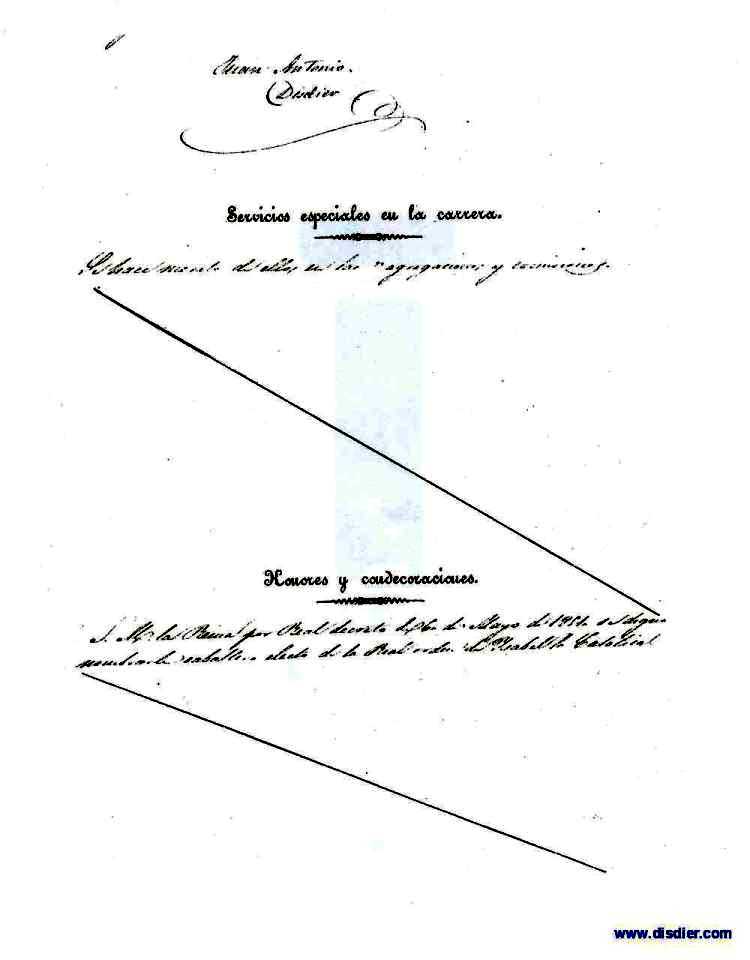 Juan Antonio.
Disdier
Servicios especiales en la carrera.
Se hace mérito de ellos en las agregaciones y comisiones.
Honores y condecoraciones.
S. M. la Reina por Real decreto de de Mayo de se dignó
nombrarle caballero electo de la Real orden de Ysabel la Católica
www.disdier.com